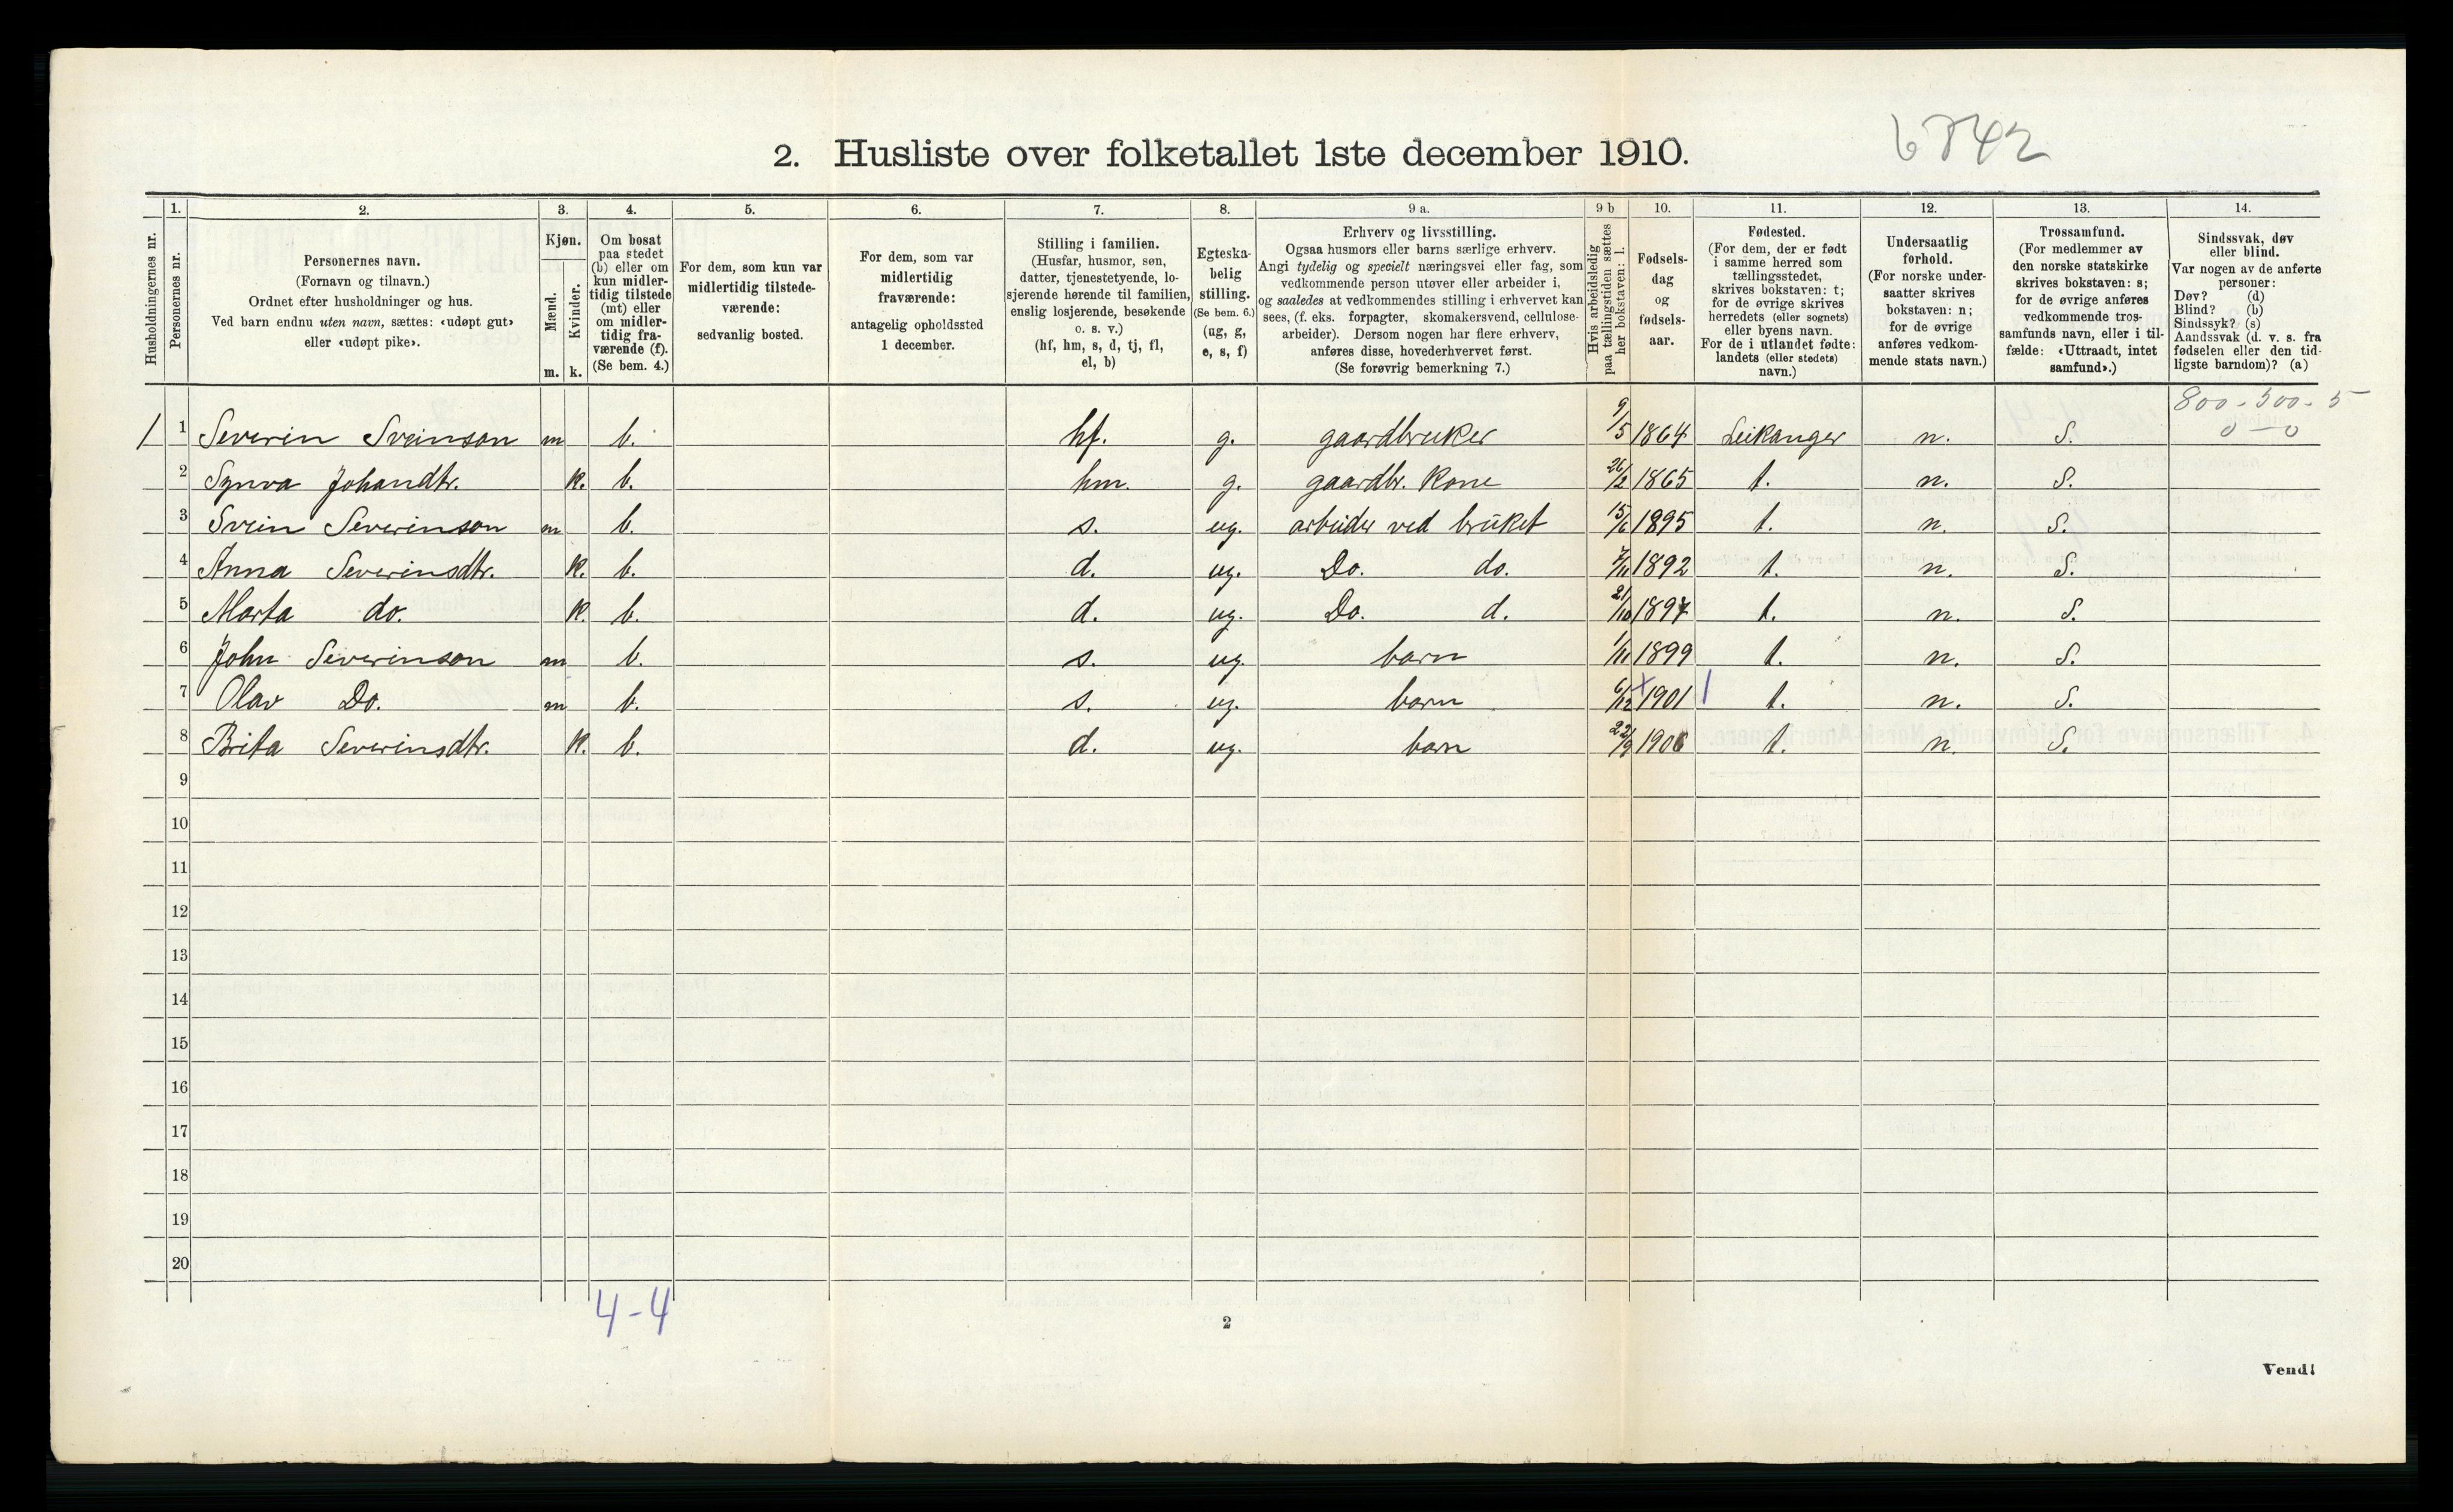 2. Husliste over folketallet 1ste december 1910.
6842
Husholdningernes nr.
1. Personernes nr.
2. Personernes navn.
(Fornavn og tilnavn.)
Ordnet efter husholdninger og hus.
Ved barn endnu uten navn, sættes: «udøpt gut»
eller «udøpt pike».
3. Kjøn.
Mænd. m.
Kvinder. k.
4. Om bosat
paa stedet
(b) eller om
kun midler-
tidig tilstede
(mt) eller
om midler-
tidig fra-
værende (f).
(Se bem. 4.)
5. For dem, som kun var
midlertidig tilstede-
værende:
sedvanlig bosted.
6. For dem, som var
midlertidig
fraværende:
antagelig opholdssted
1 december.
7. Stilling i familien.
(Husfar, husmor, søn,
datter, tjenestetyende, lo-
sjerende hørende til familien,
enslig losjerende, besøkende
o. s. v.)
(hf, hm, s, d, tj, fl,
el, b)
8. Egteska-
belig
stilling.
(Se bem. 6.)
(ug, g,
e, s, f)
9 a. Erhverv og livsstilling.
Ogsaa husmors eller barns særlige erhverv.
Angi tydelig og specielt næringsvei eller fag, som
vedkommende person utøver eller arbeider i,
og saaledes at vedkommendes stilling i erhvervet kan
sees, (f. eks. forpagter, skomakersvend, cellulose-
arbeider). Dersom nogen har flere erhverv,
anføres disse, hovederhvervet først.
(Se forøvrig bemerkning 7.)
9 b Hvis arbeidsledig
paa tællingstiden sættes
her bokstaven: l.
10. Fødsels-
dag
og
fødsels-
aar.
11. Fødested.
(For dem, der er født
i samme herred som
tællingsstedet,
skrives bokstaven: t;
for de øvrige skrives
herredets (eller sognets)
eller byens navn.
For de i utlandet fødte:
landets (eller stedets)
navn.)
12. Undersaatlig
forhold.
(For norske under-
saatter skrives
bokstaven: n;
for de øvrige
anføres vedkom-
mende stats navn.)
13. Trossamfund.
(For medlemmer av
den norske statskirke
skrives bokstaven: s;
for de øvrige anføres
vedkommende tros-
samfunds navn, eller i til-
fælde: «Uttraadt, intet
samfund».)
14. Sindssvak, døv
eller blind.
Var nogen av de anførte
personer:
Døv? (d)
Blind? (b)
Sindssyk? (s)
Aandssvak (d. v. s. fra
fødselen eller den tid-
ligste barndom)? (a)
800 - 500 - 5
0 — 0
1 1 Severin Sveinson m b. hf. g. gaardbruker 9/5 1864 Leikanger n. S.
2 Synva Johandtr. k. b. hm. g. gaardbr. kone 26/2 1865 t. n. S.
3 Svein Severinson m b. s. ug. arbeider ved bruket 15/6 1895 t. n. S.
4 Anna Severinsdtr. k. b. d. ug. Do. do. 7/11 1892 t. n. S.
5 Marta do. k. b. d. ug. Do. d. 21/10 1897 t. n. S.
6 John Severinson m b. s. ug. barn 1/11 1899 t. n. S.
7 Olav Do. m b. s. ug. barn 6/12 1901 t. n. S.
8 Brita Severinsdtr. k. b. d. ug. barn 22/9 1906 t. n. S.
9
10
11
12
13
14
15
16
17
18
19
20
4-4
2
Vend!